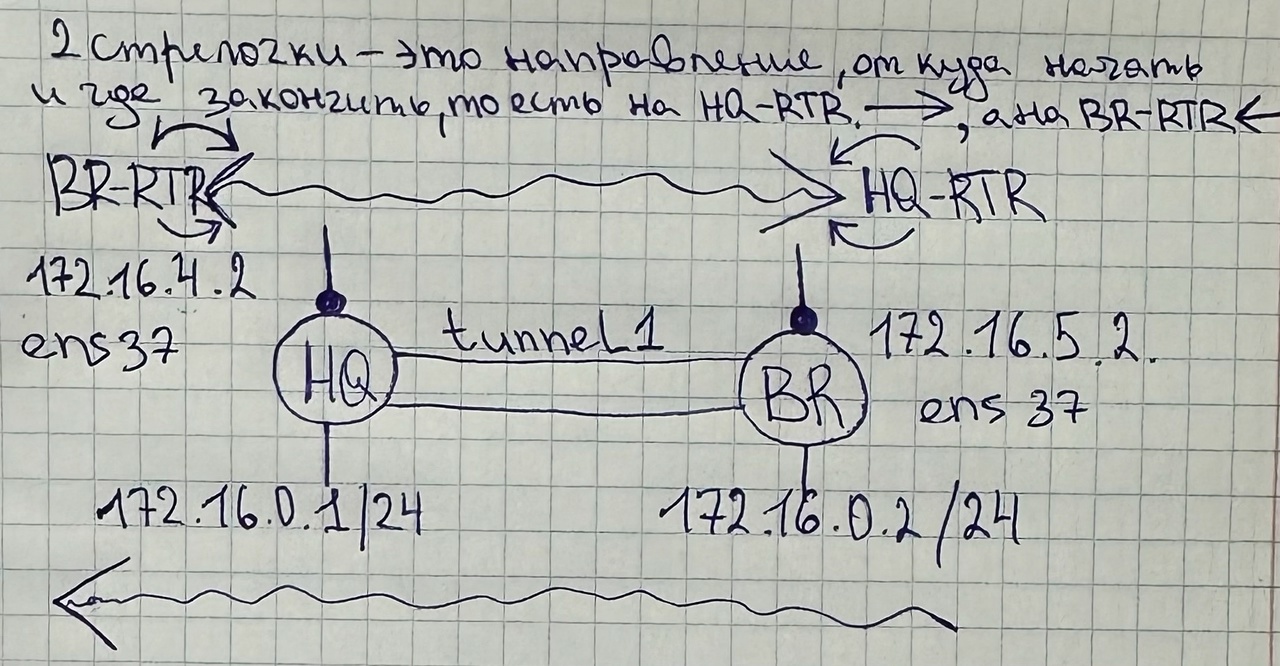 2 стрелочки – это направление, от куда начать
и где закончить, то есть на HQ-RTR. →, а на BR-RTR ←
BR-RTR
HQ-RTR
172.16.4.2
ens37
HQ
tunnel1
BR
172.16.5.2.
ens 37
172.16.0.1/24
172.16.0.2/24